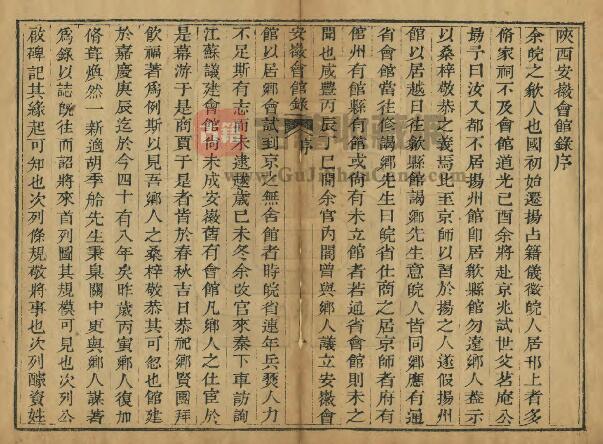 陝西安徽會館錄序
余皖之歙人也國初始遷揚占籍儀徵皖人居邗上者多
脩家祠不及會館道光己酉余將赴京兆試世父茗庵公
揚子曰汝入都不居揚州館卽居歙縣館勿違鄉人蓋示
以桑梓敬恭之義焉比至京師以習於揚之人遂假揚州
館以居越日往歙縣館謁鄉先生意皖人皆同鄉應有通
省會館當往脩謁鄉先生曰皖省仕商之居京師者府有
館州有館縣有館或尚有未立館者若通省會館則未之
聞也咸豐丙辰丁巳間余官內閣曾與鄉人議立安徽會
安徽會館錄 序
館以居鄉會試到京之無舍館者時皖省連年兵燹人力
不足斯有志而未逮越歲己未冬余改官來秦下車訪詢
江蘇議建會館尚未成安徽舊有會館凡鄉人之仕宦於
是幕游于是商賈于是者皆於春秋吉日恭祀鄉賢團拜
飲福著爲例斯以見吾鄉人之桑梓敬恭其可忽也館建
於嘉慶庚辰迄於今四十有八年矣昨歲丙寅鄉人復加
脩葺煥然一新適胡季船先生秉臬關中更與鄉人謀著
爲錄以誌旣往而詔將來首列圖其規模可見也次列公
啟碑記其緣起可知也次列條規敬將事也次列醵資姓
古籍
www.GuJiShouCang.com